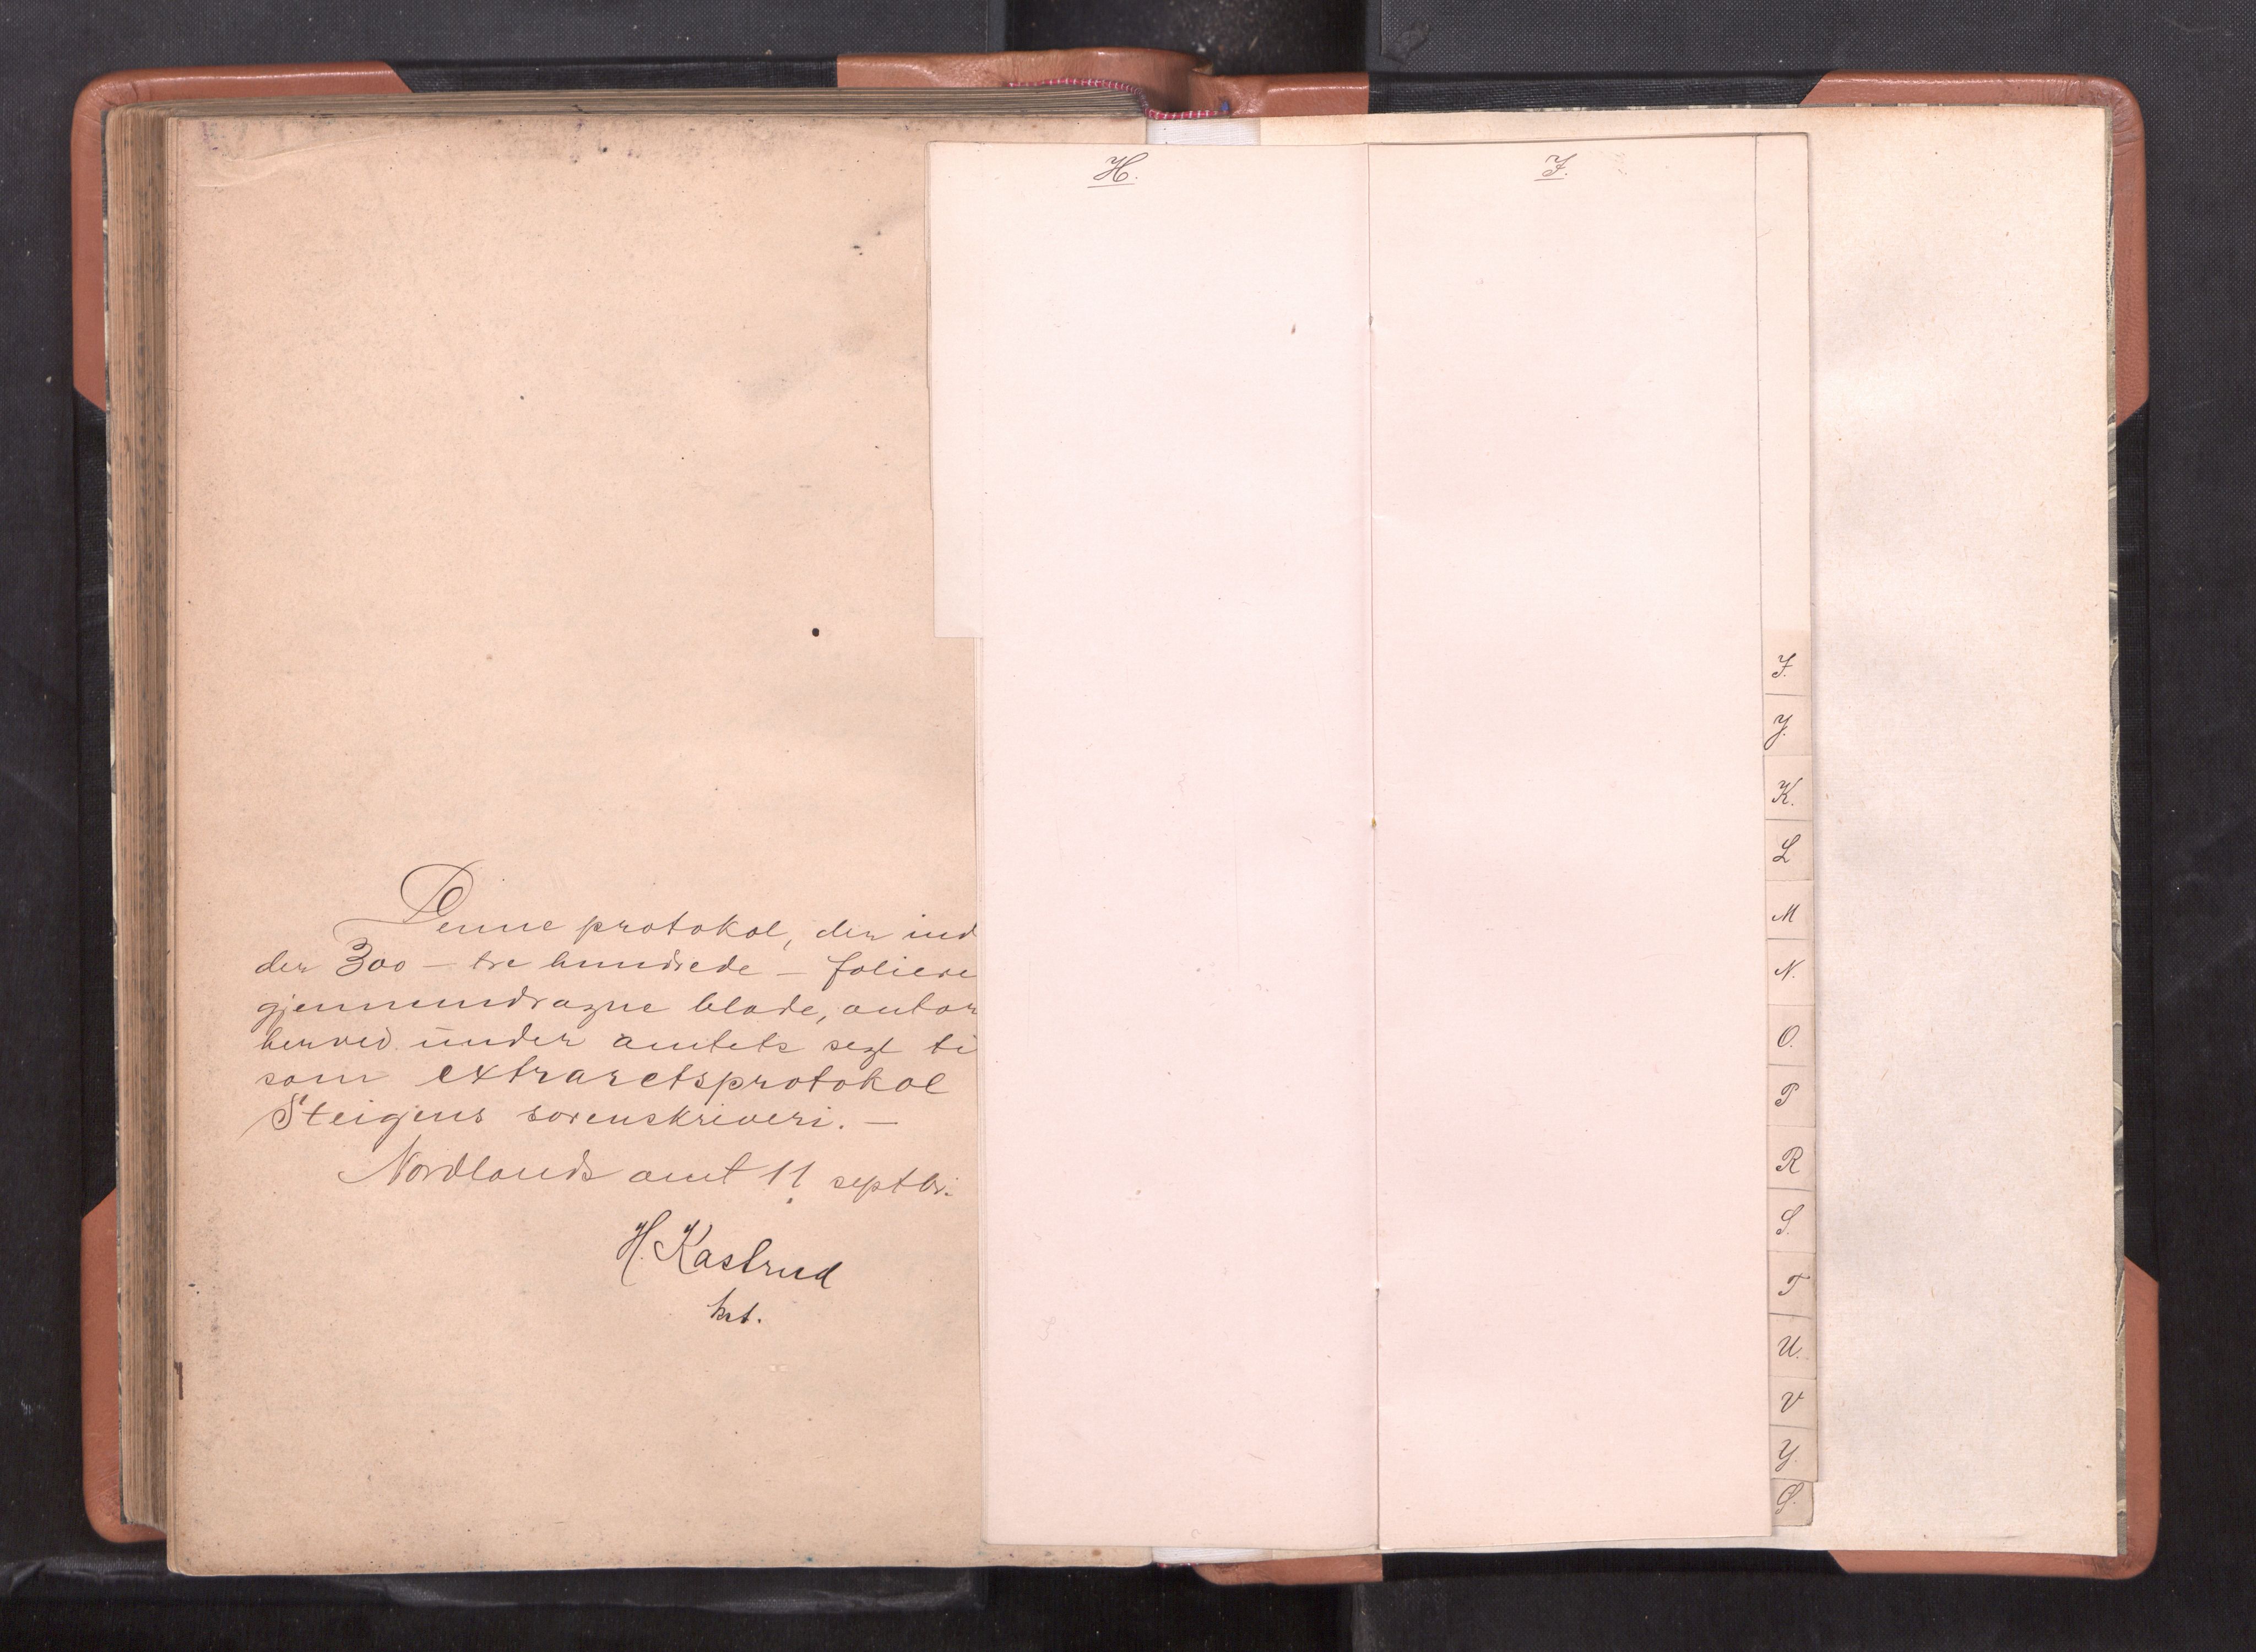 Denne protokol, der ind
der 300 - tre hundrede - foliere
gjennemdragne blade, autor
herved under amtets segl ti
som extraretsprotokol
Steigens sorenskriveri. -
Nordlands amt 11 septbr.
H. Kastrud
kst.
H.
I.
I.
J.
K.
L
M
N.
O.
P
R
S.
T
U.
V
Y.